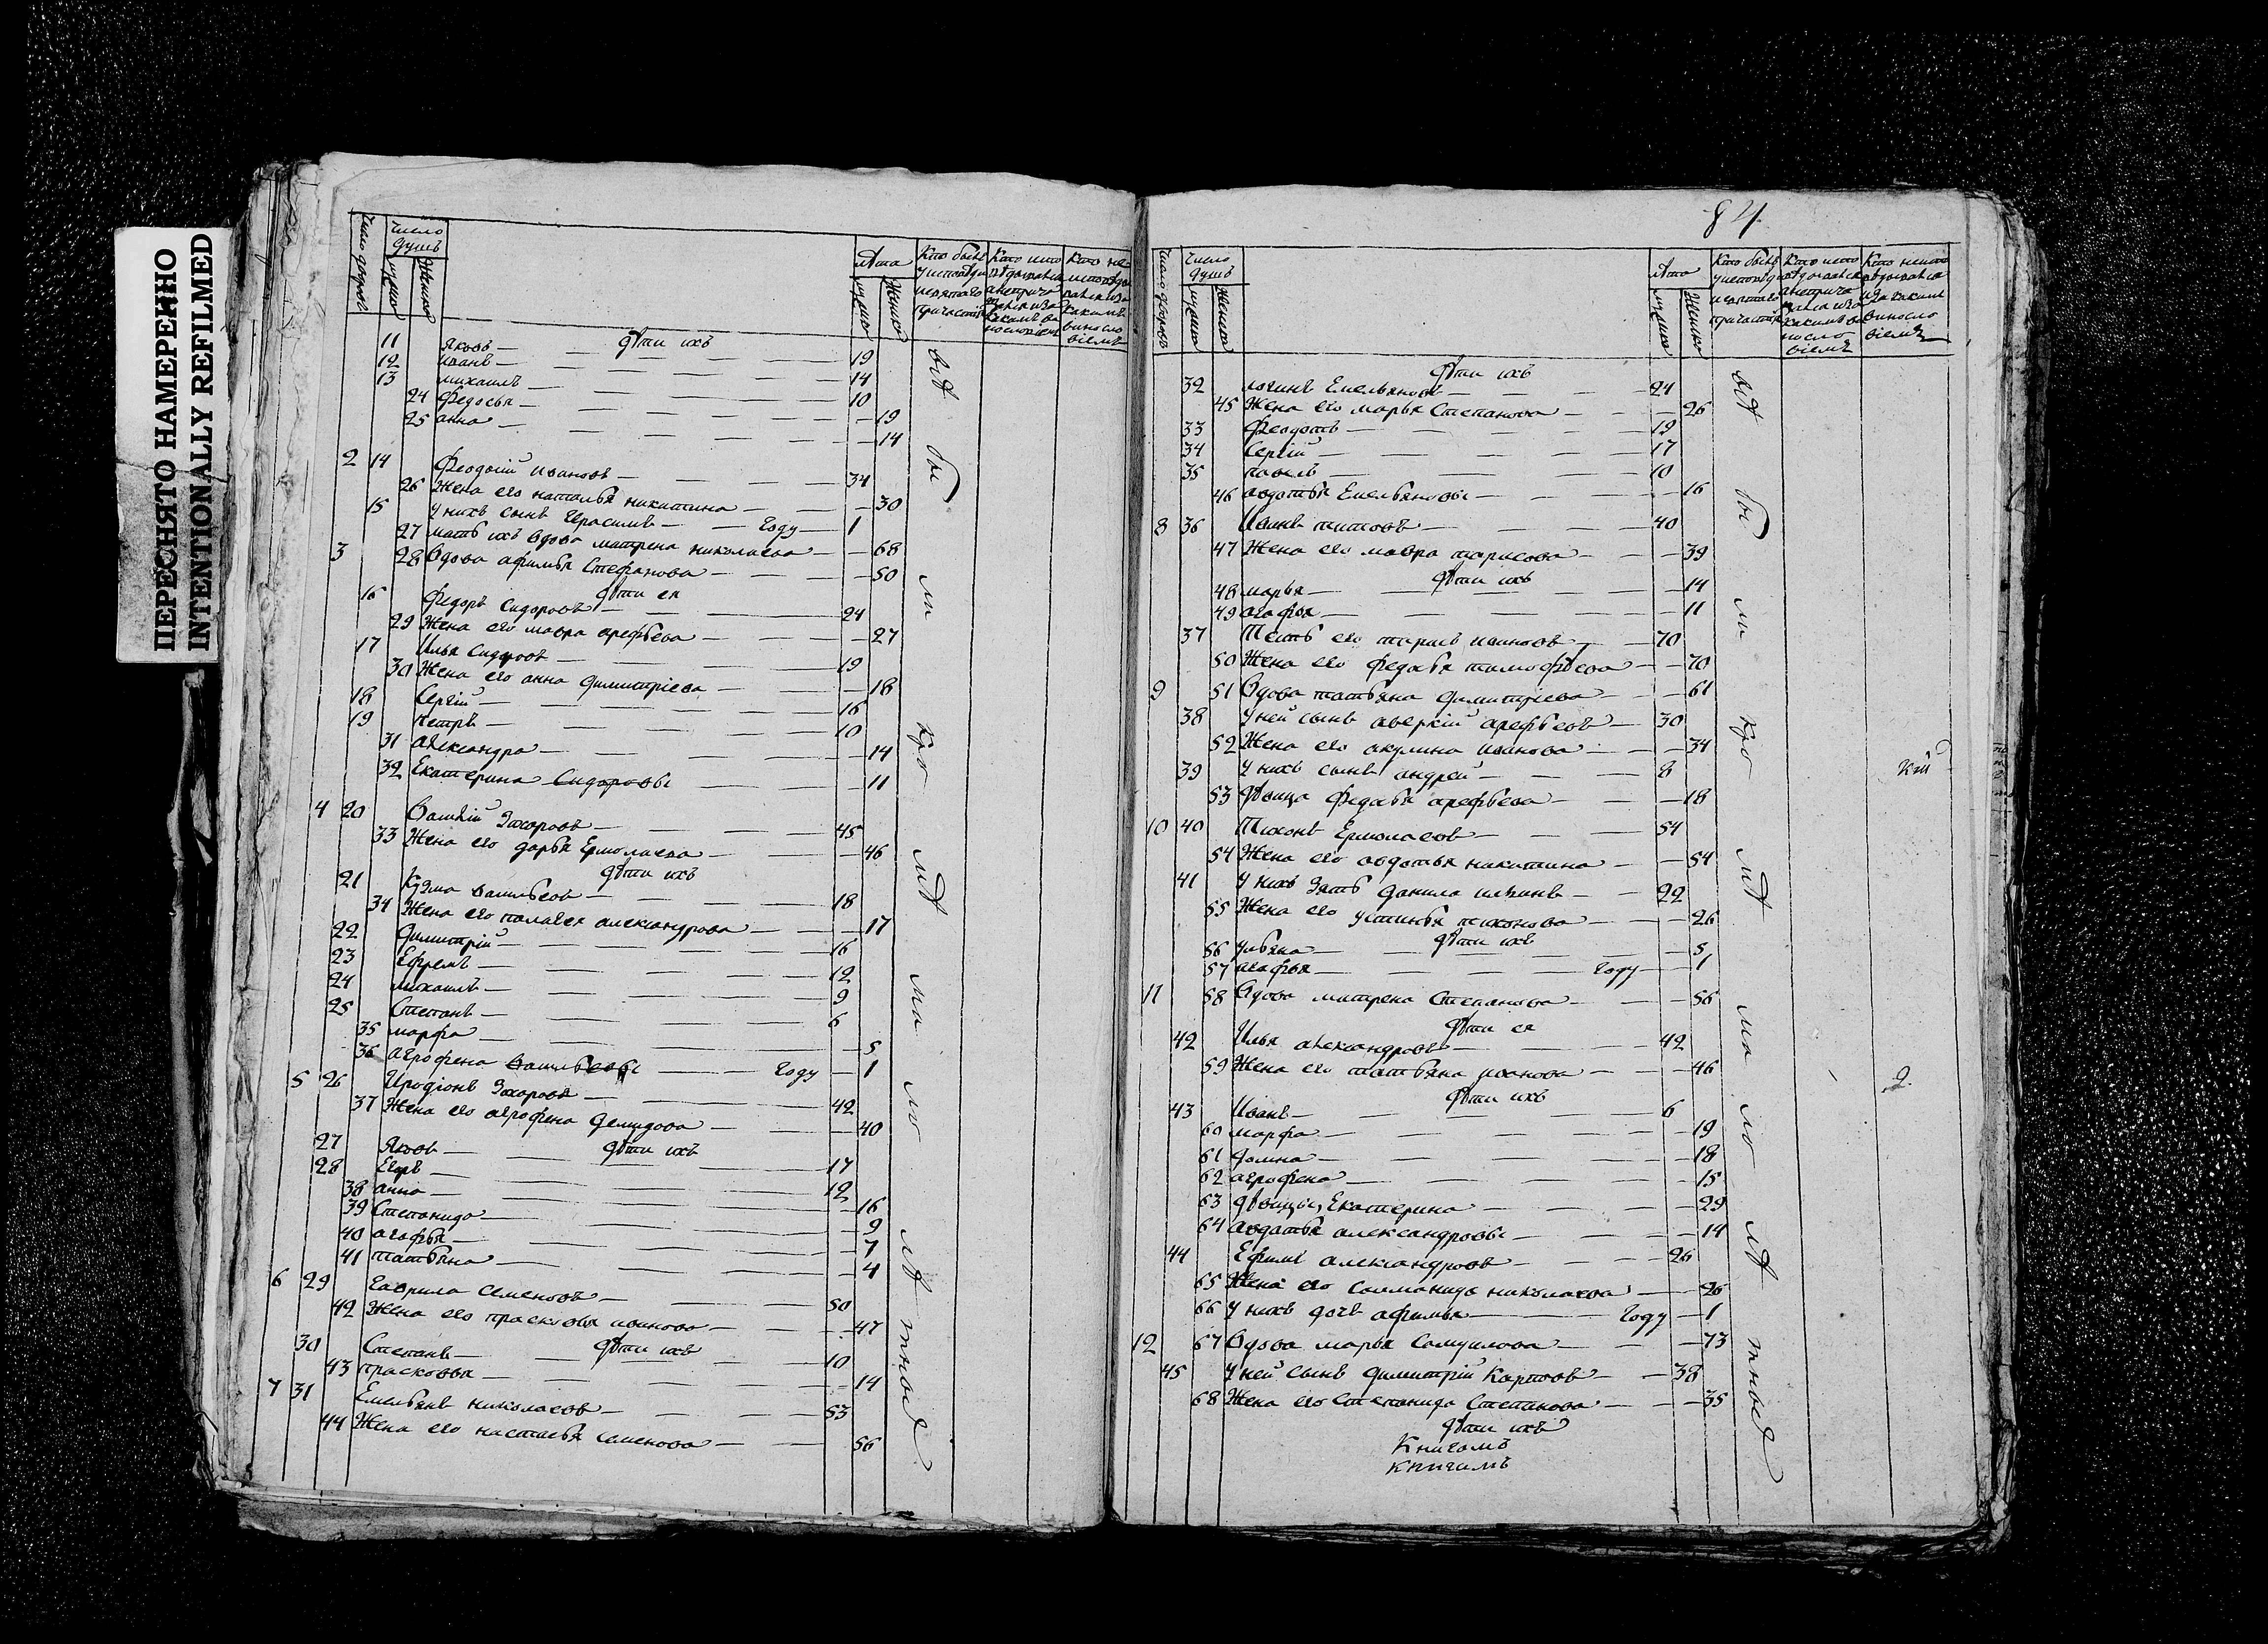 ПЕРЕСНЯТО НАМЕРЕННО
INTENTIONALLY REFILMED
Число дворовъ
Число душъ
мужеска
Женска
Лѣта
мужеска
Женска
Кто былъ у исповѣди и святаго причастія
дѣти ихъ
11 Яковъ 19
12 Иванъ 14
13 михаилъ 10
24 Федосья 19
25 анна 14
2 14 Феодосій Ивановъ 34
26 Жена его наталья никитина 30
15 у нихъ сынъ Герасимъ году 1
27 мать ихъ вдова матрена николаева 68
3 28 Вдова афимья Стефанова 50
дѣти ея
16 Федоръ Сидоровъ 24
29 Жена его мавра арефьева 27
17 Илья Сидоровъ 19
30 Жена его анна димитріева 18
18 Сергій 16
19 петръ 10
31 александра 14
32 Екатерина Сидоровы 11
4 20 Василій Захаровъ 45
33 Жена его дарья Ермолаева 46
дѣти ихъ
21 Кузма васильевъ 18
34 Жена его палагея александрова 17
22 димитрій 16
23 Ефремъ 12
24 михаилъ 9
25 Степанъ 6
35 марфа 5
36 агрофена Васильевы году 1
5 26 Иродіонъ Захаровъ 42
37 Жена его агрофена демидова 40
дѣти ихъ
27 Яковъ 17
28 Егоръ 12
38 анна 16
39 Степанида 9
40 агафья 7
41 татьяна 4
6 29 Гаврила Семеновъ 50
42 Жена его прасковья иванова 47
дѣти ихъ
30 Степанъ 10
43 прасковья 14
7 31 Емельянъ николаевъ 53
44 Жена его настасья семенова 56
84
Число дворовъ
Число душъ
мужеска
Женска
Лѣта
мужеска
Женска
Кто былъ у исповѣди и святаго причастія
дѣти ихъ
32 логинъ Емельяновъ 24
45 Жена его марья Степанова 26
33 Феодотъ 19
34 Сергій 17
35 павелъ 10
46 авдотья Емельяновы 16
8 36 Иванъ титовъ 40
47 Жена его мавра тарасова 39
дѣти ихъ
48 марья 14
49 агафья 11
37 Тесть его тарасъ ивановъ 70
50 Жена его федосья тимофѣева 70
9 51 Вдова татьяна димитріева 61
38 у ней сынъ аверкій арефьевъ 30
52 Жена его акулина иванова 34
39 у нихъ сынъ андрей 8
53 дѣвица федосья арефьева 18
10 40 Тихонъ Ермолаевъ 54
54 Жена его авдотья никитина 54
41 у нихъ зять данила ильинъ 22
55 Жена его устинья тихонова 26
дѣти ихъ
56 ульяна 5
57 агафья году 1
11 58 Вдова матрена Степанова 56
дѣти ея
42 Илья александровъ 42
59 Жена его татьяна иванова 46
дѣти ихъ
43 Иванъ 6
60 марфа 19
61 домна 18
62 агрофена 15
63 дѣвицы, Екатерина 29
64 авдотья александровы 14
44 Ефимъ александровъ 26
65 Жена его Саломанида николаева 26
66 у нихъ дочь афимья году 1
12 67 Вдова марья Самуилова 73
45 у ней сынъ димитрій Карповъ 38
68 Жена его Степанида Степанова 35
дѣти ихъ
Книгамъ
книгамъ